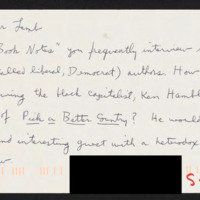 Lamb
Book Notes" you frequently interview
liberal, Democrat) authors. How
the black capitalist, Ken Hambl
of Pick a Better Country? He would
interesting guest with a heterodox
S